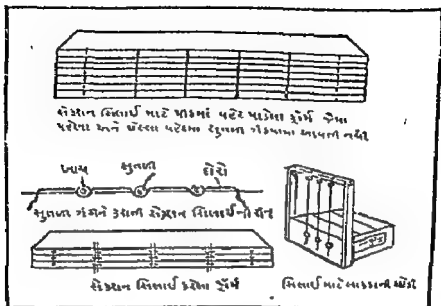 સેક્શન સિલાઈ માટે પાકમાં પટેર પાડેલા ફોર્મ જેમા
પહેલા અને છેલ્લા પટેરમાં સુતળી ગોઠવવામાં આવતી નથી
ખાચ સુતળી દોરો
સુતળી ગોઠવીને કરાતી સેક્શન સિલાઈની રીત
સેક્શન સિલાઈ કરેલા ફોર્મ
સિલાઈ માટે લાકડાની ઘોડી